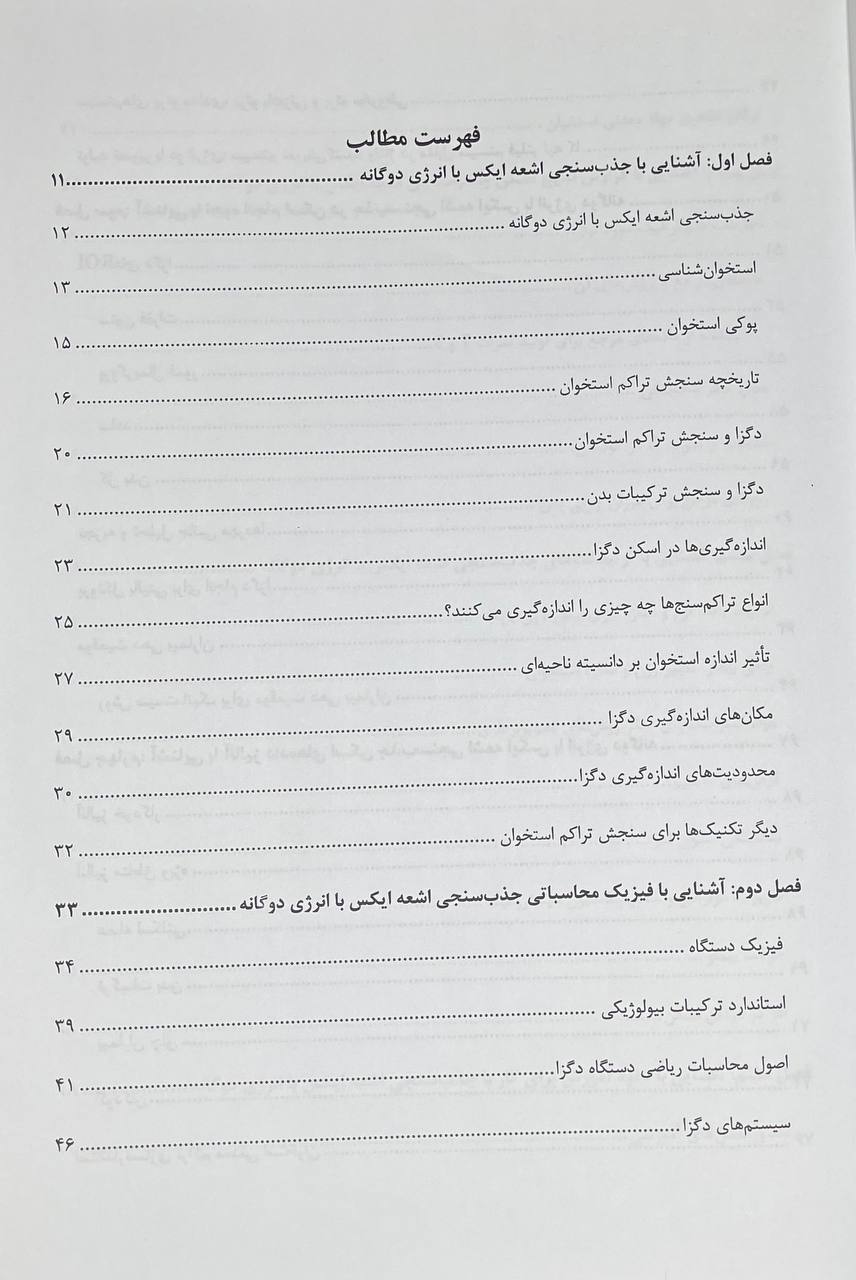 فهرست مطالب
فصل اول: آشنایی با جذب‌سنجی اشعه ایکس با انرژی دوگانه ..... ۱۱
جذب‌سنجی اشعه ایکس با انرژی دوگانه ..... ۱۲
استخوان‌شناسی ..... ۱۳
پوکی استخوان ..... ۱۵
تاریخچه سنجش تراکم استخوان ..... ۱۶
دگزا و سنجش تراکم استخوان ..... ۲۰
دگزا و سنجش ترکیبات بدن ..... ۲۱
اندازه‌گیری‌ها در اسکن دگزا ..... ۲۳
انواع تراکم‌سنج‌ها چه چیزی را اندازه‌گیری می‌کنند؟ ..... ۲۵
تأثیر اندازه استخوان بر دانسیته ناحیه‌ای ..... ۲۷
مکان‌های اندازه‌گیری دگزا ..... ۲۹
محدودیت‌های اندازه‌گیری دگزا ..... ۳۰
دیگر تکنیک‌ها برای سنجش تراکم استخوان ..... ۳۲
فصل دوم: آشنایی با فیزیک محاسباتی جذب‌سنجی اشعه ایکس با انرژی دوگانه ..... ۳۳
فیزیک دستگاه ..... ۳۴
استاندارد ترکیبات بیولوژیکی ..... ۳۹
اصول محاسبات ریاضی دستگاه دگزا ..... ۴۱
سیستم‌های دگزا ..... ۴۶